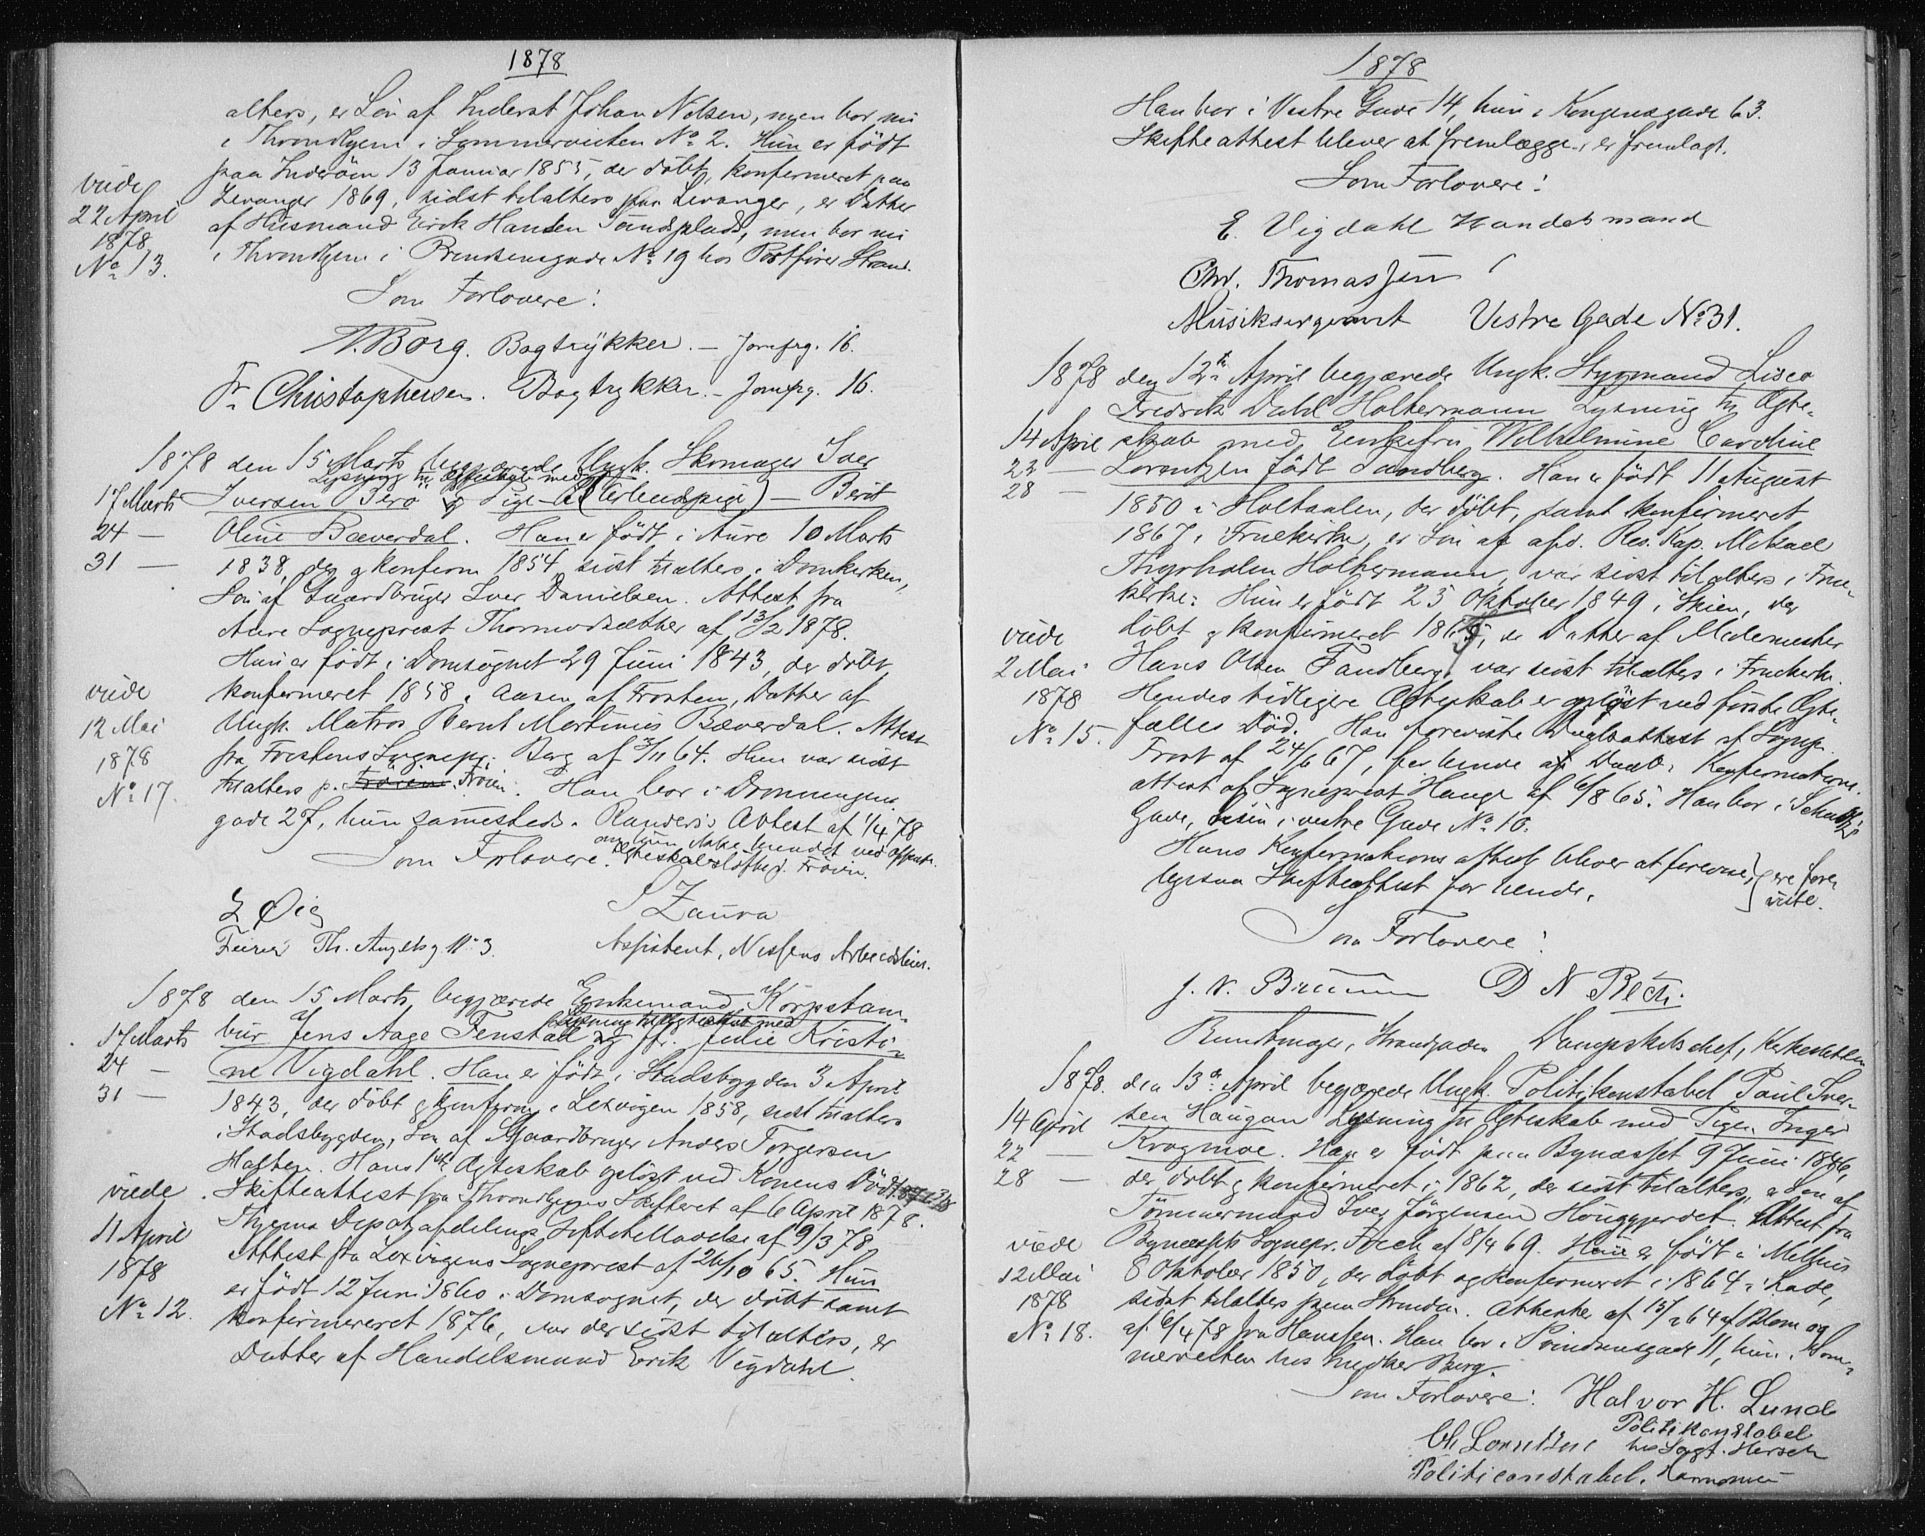 1878
alters, er Søn af Inderst Johan Nilsen, men bor nu
i Throndhjem i Sommerveiten No 2. Hun er født
paa Inderøen 13 Januar 1855, der døbt, konfirmeret paa
Levanger 1869, sidst tilalters paa Levanger, er Datter
af Husmand Erik Hansen Sundsplads, men bor nu
i Throndhjem i Prindsensgade No 19 hos Postfører Strand.
viede
22 April
1878
No 13.
Som Forlovere:
Borg. Bogtrykker. — Jomfrg. 16.
Fr. Christophersen. Bogtrykker. — Jomfrg. 16.
1878 den 15 Marts begjærede Ungk. Skomager Iver
Lysning til Ægteskab med
17 Marts Iversen Berø og Pige (Arbeidspige) — Berit
24 — Oline Bæverdal. Han er født i Aure 10 Marts
31 — 1838, døbt og konfirm 1854, sidst tilalters i Domkirken,
Søn af Gaardbruger Iver Danielsen. Attest fra
Aure Sogneprest Thormodsæther af 13/2 1878.
Hun er født i Domsognet 29 Juni 1843, der døbt,
konfirmeret 1858 i Aasen af Frosten, Datter af
Ungk. Matros Bernt Martinus Bæverdal. Attest
fra Frostens Sognepr. Berg af 3/11 64. Hun var sidst
tilalters p. Frøien. Han bor i Dronningens
gade 27, hun sammesteds. Randers's Attest af 1/4 78
om hun ikke bundet ved offentl.
Ægteskabsløfte p. Frøien.
viede
12 Mai
1878
No 17.
Som Forlovere.
L Øien
Th. Angelsg. No 3.
S Zaura
Assistent, Nissens Arbeidsleier.
1878 den 15 Marts begjærede Enkemand Korpstam-
Lysning til Ægteskab med
17 Marts bur Jens Aage Fenstad og Jfr. Julie Kristi-
24 — ne Vigdahl. Han er født i Stadsbygden 3 April
31 — 1843, der døbt og konfirm i Lexvigen 1858, sidst tilalters
i Stadsbygden, Søn af Gaardbruger Anders Torgersen
Halten. Hans 1ste Ægteskab opløst ved Konens Død
Skifteattest fra Throndhjems Skifteret af 6 April 1878.
Thjems Depotafdelings Giftetilladelse af 9/3 78.
Attest fra Lexvigens Sogneprest af 26/10 65. Hun
er født 12 Juni 1860 i Domsognet, der døbt samt
konfirmereret 1876, var der sidst til alters, er
Datter af Handelsmand Erik Vigdahl.
viede
11 April
1878
No 12.
1878
Han bor i Vestre Gade 14, hun i Kongensgade 63.
Skifteattest bliver at fremlægge, er fremlagt.
Som Forlovere:
E. Vigdahl Handelsmand
Chr. Thomassen
Musiksergeant Vestre Gade No 31.
1878 den 12te April begjærede Ungk. Styrmand Lisco
Fredrik Dahl Holtermann Lysning til Ægte-
14 April skab med Enkefru Wilhelmine Caroline
22 — Lorentzen født Sandberg. Han er født 11 August
28 — 1850 i Holtaalen, der døbt, samt konfirmeret
1867 i Fruekirke, er Søn af afd. Res. Kap. Mikael
Thyrholm Holtermann, var sidst til alters i Frue-
kirke. Hun er født 25 Oktober 1849 i Skien, der
døbt og konfirmeret 1865, er Datter af Malemester
Hans Olsen Sandberg, var sidst tilalters i Fruekirke.
Hendes tidligere Ægteskab er opløst ved første Ægte-
fælles Død. Han foreviste Daabsattest af Sognep.
Frost af 24/6 67, for hende af Daab, Konfirmations-
attest af Sogneprest Hauge af 6/8 65. Han bor i Schultz's
Gade, hun i vestre Gade No 10.
viede
2 Mai
1878
No 15.
Hans Konfirmations attest bliver at forevise, } ere fore
ligesaa Skifteattest for hende. } viste.
Som Forlovere:
J. N. Bruun D N Beck.
Buntmager, Strandgaden Dampskibschef,
1878. den 13de April begjærede Ungk. Politikonstabel Paul Iver-
14 April sen Haugan Lysning til Ægteskab med Pigen Inger
22 — Krogmoe. Han er født paa Bynæsset 9 Juni 1846,
28 — der døbt og konfirmeret i 1862, der sidst tilalters, er Søn af
Tømmermand Iver Jørgensen Houggjerdet. Attest fra
Bynæssets Sognepr. Finck af 8/4 69. Hun er født i Melhus
8 Oktober 1850, der døbt og konfirmeret i 1864 i Lade,
sidst tilalters paa Strinden. Attester af 15/12 64 af Blom og
af 6/4 78 fra Hanssen. Han bor i Prindsensgade 11, hun i Som-
merveiten hos Snedker Berg.
viede
12 Mai
1878
No 18.
Som Forlovere: Halvor H. Lund
Politikonstabel
Ch Lorentzen hos Sagf. Hersch
Politiconstabel.